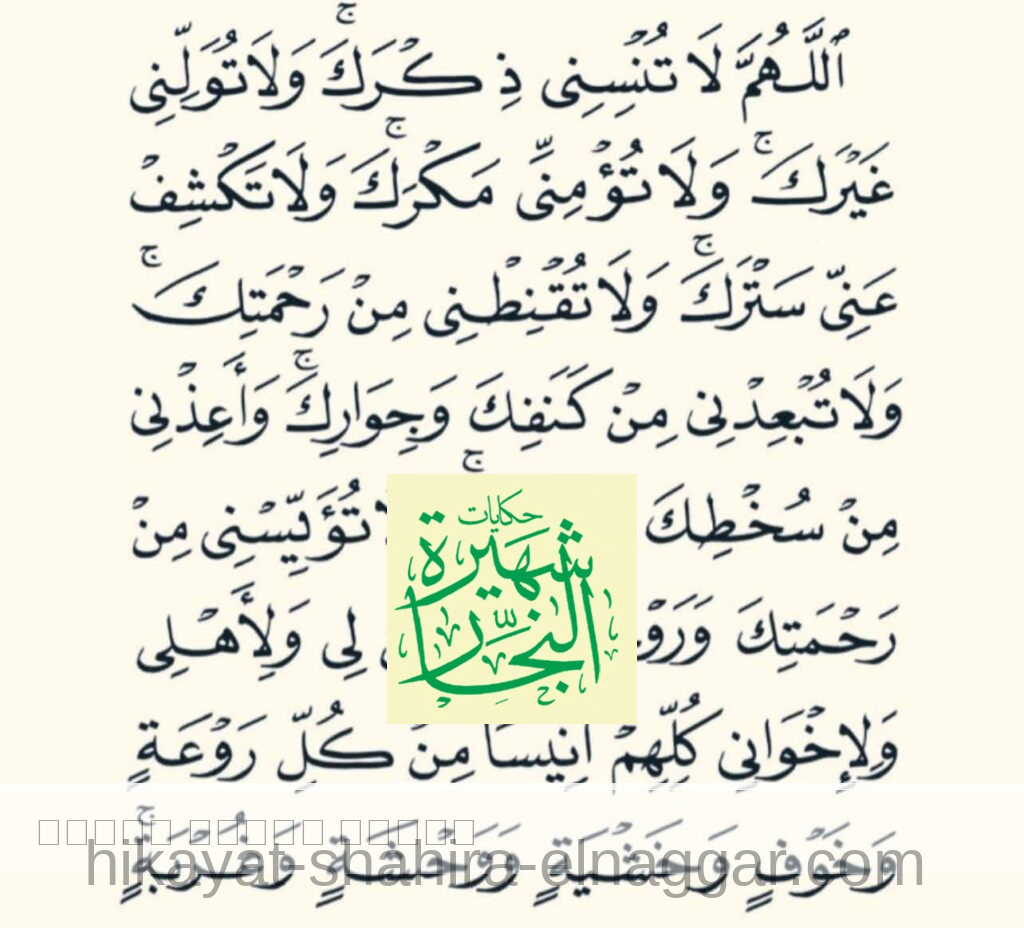 ٱللَّهُمَّ لَا تُنْسِنِى ذِكْرَكَ ۚ وَلَا تُوَلِّنِى
غَيْرَكَ ۚ وَلَا تُؤْمِنِّى مَكْرَكَ ۚ وَلَا تَكْشِفْ
عَنِّى سَتْرَكَ ۚ وَلَا تُقْنِطْنِى مِنْ رَحْمَتِكَ ۚ
وَلَا تُبْعِدْنِى مِنْ كَنَفِكَ وَجِوَارِكَ ۚ وَأَعِذْنِى
مِنْ سُخْطِكَ تُؤَيِّسْنِى مِنْ
رَحْمَتِكَ لِى وَلِأَهْلِى
وَلِإِخْوَانِى كُلِّهِمْ اَنِيسًا مِنْ كُلِّ رَوْعَةٍ
وَخَوْفٍ وَخَشْيَةٍ وَوَحْشَةٍ وَغُرْبَةٍ ۚ
حكايات
شهيرة
النجَّار
hikayat-shahira-elnaggar.com